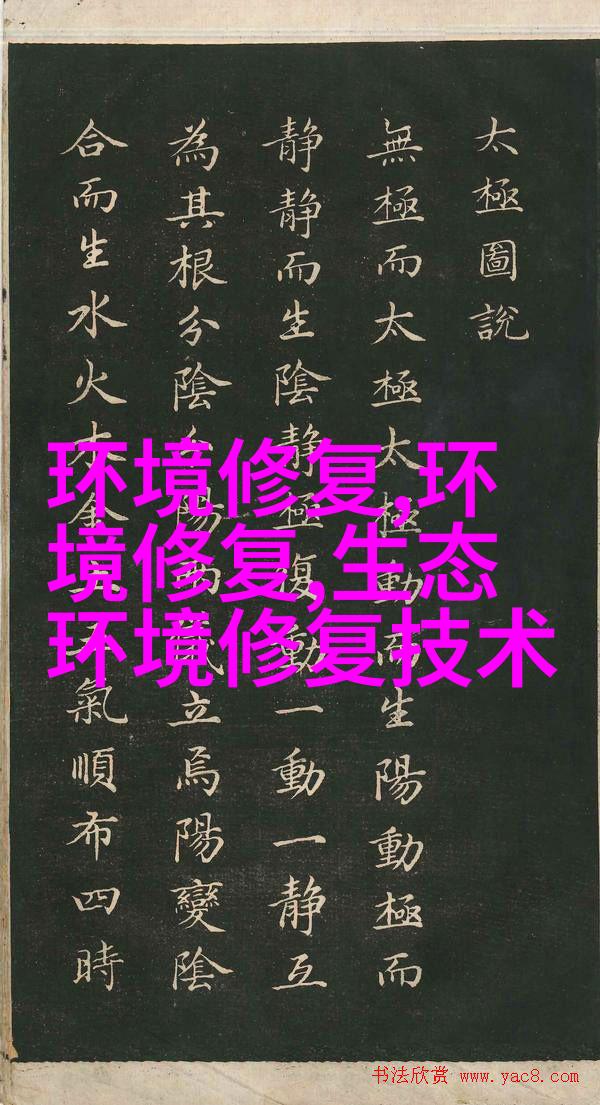 太極圖說
無極而太極太極動而生陽動極而
静静而生陰静極復動一動一静互
為其根分陰分陽兩儀立焉陽變陰
合而生水火木金土五氣順布四時
环境修复,环
境修复,生态
环境修复技术
书法欣赏 www.yac8.com